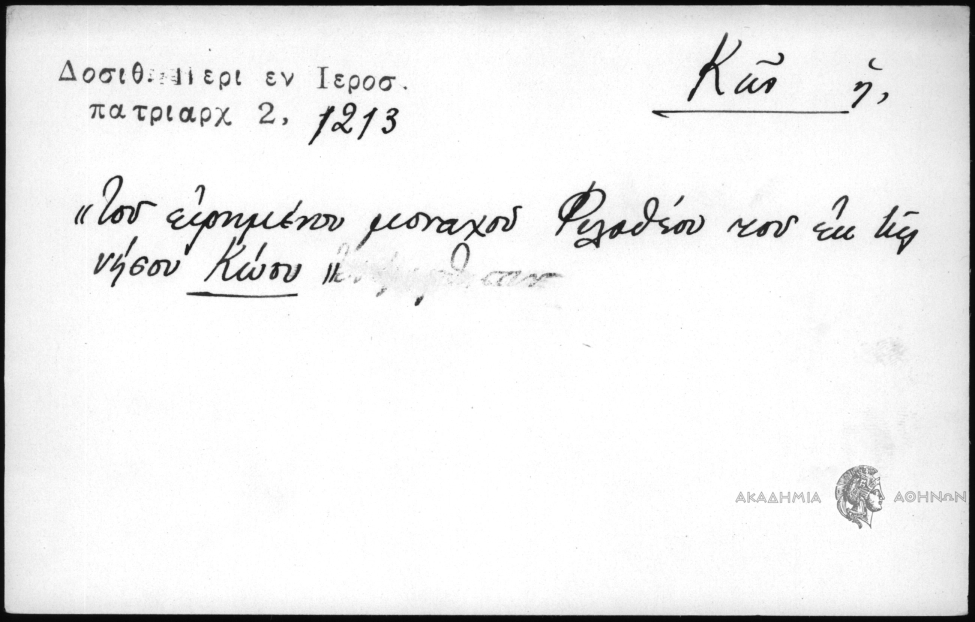 Δοσιθ. Περι εν Ιεροσ.
πατριαρχ 2, 1213
Κῶς ἡ,
"Τοῦ εἰρημένου μοναχοῦ Φιλοθέου τοῦ ἐκ τῆς
νήσου Κώσου"
ΑΚΑΔΗΜΙΑ ΑΘΗΝΩΝ